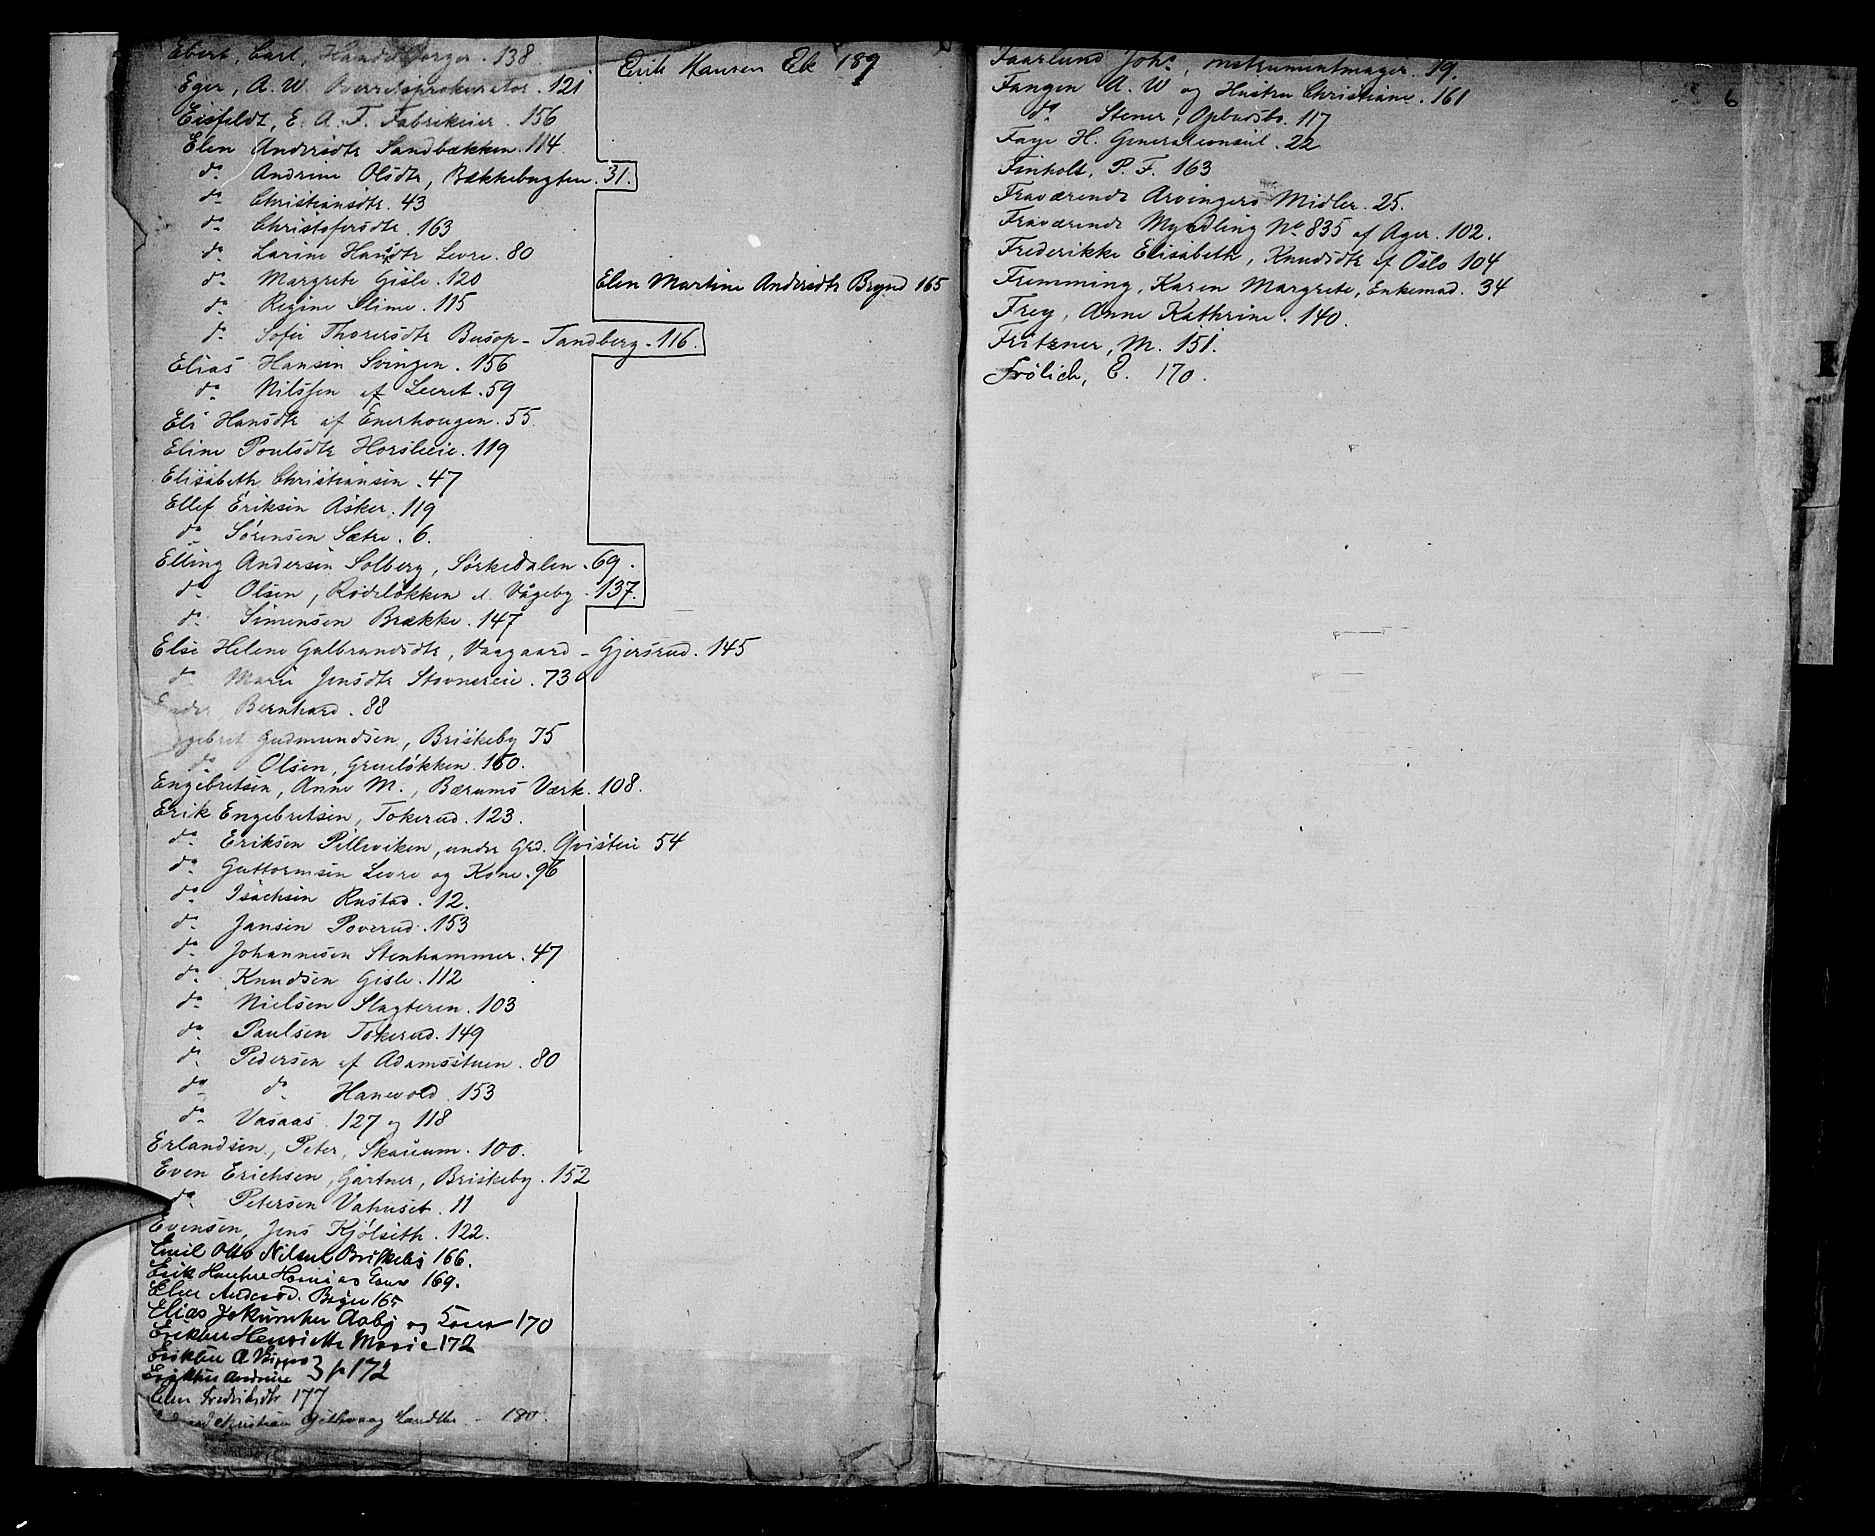 Ebert, Carl, Handelsborger. 138.
Eger, A. W. Overretsprokurator. 121
Eisfeldt, E. A. F. Fabrikeier. 156
Elen Andersdtr Sandbækken. 114.
do Andrine Olsdtr, Bækkebugten. 31.
do Christiansdtr. 43
do Christofersdtr. 163
do Larine Hansdtr Levre. 80
do Margrete Gisle. 120
do Regine Slime. 115
do Sofie Thorersdtr Busop - Tandberg. 116.
Elias Hansen Svingen. 156
do Nilssen af Leeret. 59
Eli Hansdtr af Enerhougen. 55.
Eline Poulsdtr Horsleie. 119
Elisabeth Christiansen. 47
Ellef Eriksen Asker. 119
do Sørensen Sætre. 6.
Elling Andersen Solberg, Sørkedalen. 69.
do Olsen, Rodeløkken e. Vågeby. 137.
do Simensen Brække. 147
Else Helene Gulbrandsdtr, Vaagaard - Gjersrud. 145
do Marie Jensdtr Stovnereie. 73
Bernhard. 88
Gudmundsen, Briskeby 75
do Olsen, Grueløkken. 160.
Engebretsen, Anne M., Bærums Værk. 108.
Erik Engebretsen, Tokerud. 123.
do Eriksen Pilleviken, under Grd. Qvisteie 54
do Guttormsen Levre og Kone. 96
do Isachsen Rustad. 12.
do Jansen Poverud. 153
do Johannesen Stenhammer. 47
do Knudsen Gisle. 112
do Nielsen Slagteren. 103
do Paulsen Tokerud. 149
do Pedersen af Adamsstuen. 80
do do Hanevold. 153
do Vasaas. 127 og 118
Erlandsen, Peter, Skarium. 100.
Even Erichsen, Gartner, Briskeby. 152
do Petersen Vahuset. 11
Evensen, Jens Kjølseth. 122.
Emil Otto Nilsen Briskeby 166.
Erik 169.
Elen Andersd. 165
Elias Aaby og 170
Eriksen Henriette Marie 172
Eriksen A
Eriksen Andrine } p 172
Elen Fredriksdtr 177
Kristian - 180.
Erik Hansen Ek 189
Elen Martine Andersdtr Brynd 165
Faarlund Johs, Instrumentmager. 19.
Fangen A. W og Hustru Christiane. 161
do Stener, Opbudsbo. 117
Faye H. Generalconsul. 22
Finholt, P. F. 163
Fraværende Arvingers Midler. 25.
Fraværende Myndling No 835 af Ager. 102.
Frederikke Elisabeth, Knudsdtr af Oslo 104
Fremming, Karen Margrete, Enkemad. 34
Frey, Anne Kathrine. 140.
Fritzner, M. 151.
Frølich, C. 170.
6